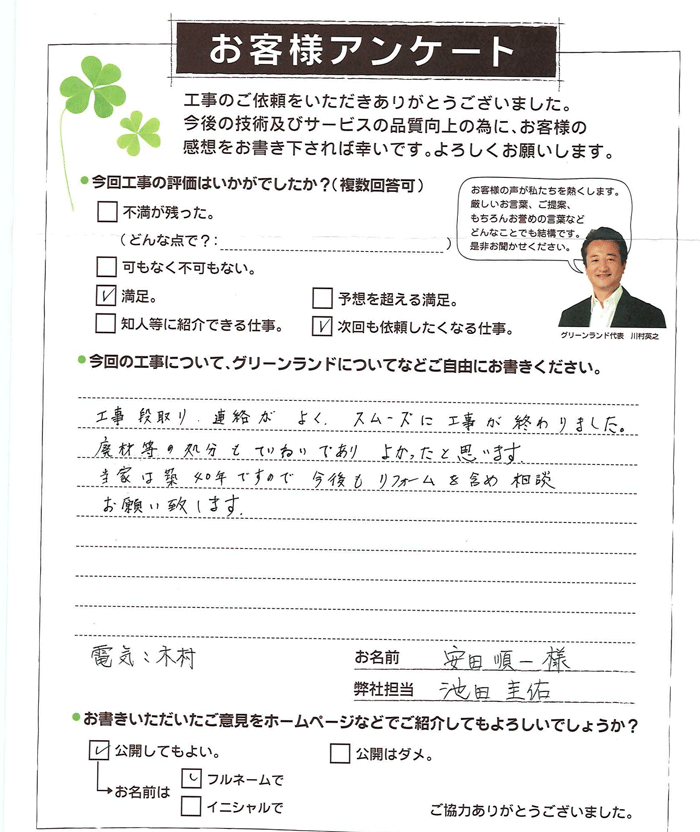 お客様アンケート
工事のご依頼をいただきありがとうございました。
今後の技術及びサービスの品質向上の為に、お客様の
感想をお書き下されば幸いです。よろしくお願いします。
今回工事の評価はいかがでしたか？（複数回答可）
不満が残った。
（どんな点で？：　）
可もなく不可もない。
満足。
予想を超える満足。
知人等に紹介できる仕事。
次回も依頼したくなる仕事。
お客様の声が私たちを熱くします。
厳しいお言葉、ご提案、
もちろんお誉めの言葉など
どんなことでも結構です。
是非お聞かせください。
グリーンランド代表　川村英之
今回の工事について、グリーンランドについてなどご自由にお書きください。
工事段取り、連絡が よく、スムーズに工事が終わりました。
廃材等の処分もていねいであり よかったと思います
当家は築40年ですので 今後もリフォームを含め相談
お願い致します。
電気：木村
お名前　安田順一様
弊社担当　池田圭佑
お書きいただいたご意見をホームページなどでご紹介してもよろしいでしょうか？
公開してもよい。
公開はダメ。
お名前は
フルネームで
イニシャルで
ご協力ありがとうございました。